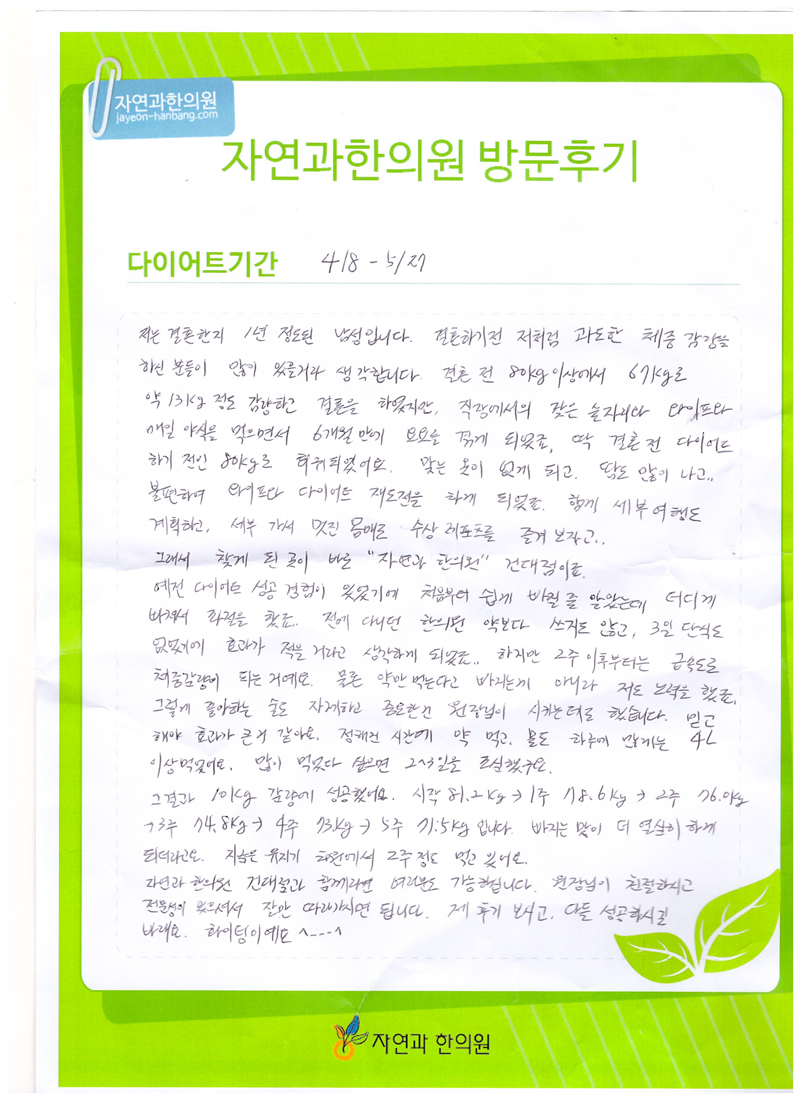 자연과한의원
jayeon-hanbang.com
자연과한의원 방문후기
다이어트기간 4/8 - 5/27
저는 결혼한지 1년 정도된 남성입니다. 결혼하기전 저처럼 과도한 체중 감량을
하신 분들이 많이 있을거라 생각합니다. 결혼 전 80kg이상에서 67kg로
약 13kg 정도 감량하고 결혼을 하였지만, 직장에서의 잦은 술자리와 와이프와
매일 야식을 먹으면서 6개월 만에 요요를 겪게 되었죠. 딱 결혼 전 다이어트
하기 전인 80kg로 복귀되었어요. 맞는 옷이 없게 되고. 땀도 많이 나고..
불편하여 와이프와 다이어트 재도전을 하게 되었죠. 함께 세부여행도
계획하고, 세부 가서 멋진 몸매로 수상 레포츠를 즐겨 보자고..
그래서 찾게 된 곳이 바로 "자연과 한의원" 건대점이죠.
예전 다이어트 성공 경험이 있었기에 처음부터 쉽게 바뀔 줄 알았는데 더디게
빠져서 좌절을 했죠.. 전에 다니던 한의원 약보다 쓰지도 않고, 3일 단식도
없었기에 효과가 적을 거라고 생각하게 되었죠.. 하지만 2주 이후부터는 급속도로
체중감량이 되는거예요. 물론 약만 먹는다고 빠지는게 아니라 저도 노력을 했죠.
그렇게 좋아하는 술도 자제하고 중요한건 원장님이 시키는데로 했습니다. 믿고
해야 효과가 큰거 같아요. 정해진 시간에 약 먹고, 물도 하루에 많게는 4L
이상먹었어요. 많이 먹었다 싶으면 2~3일을 조심했구요.
그결과 10kg 감량에 성공했어요. 시작 81.2kg → 1주 78.6kg → 2주 76.0kg
→ 3주 74.8kg → 4주 73kg → 5주 71.5kg 입니다. 빠지는 맛이 더 열심히 하게
되더라고요. 지금은 유지기 차원에서 2주정도 먹고 있어요.
자연과 한의원 건대점과 함께라면 여러분도 가능하십니다. 원장님이 친절하시고
전문성이 있으셔서 잘만 따라가시면 됩니다. 제 후기 보시고, 다들 성공하시길
바래요. 화이팅이예요 ^---^
자연과 한의원